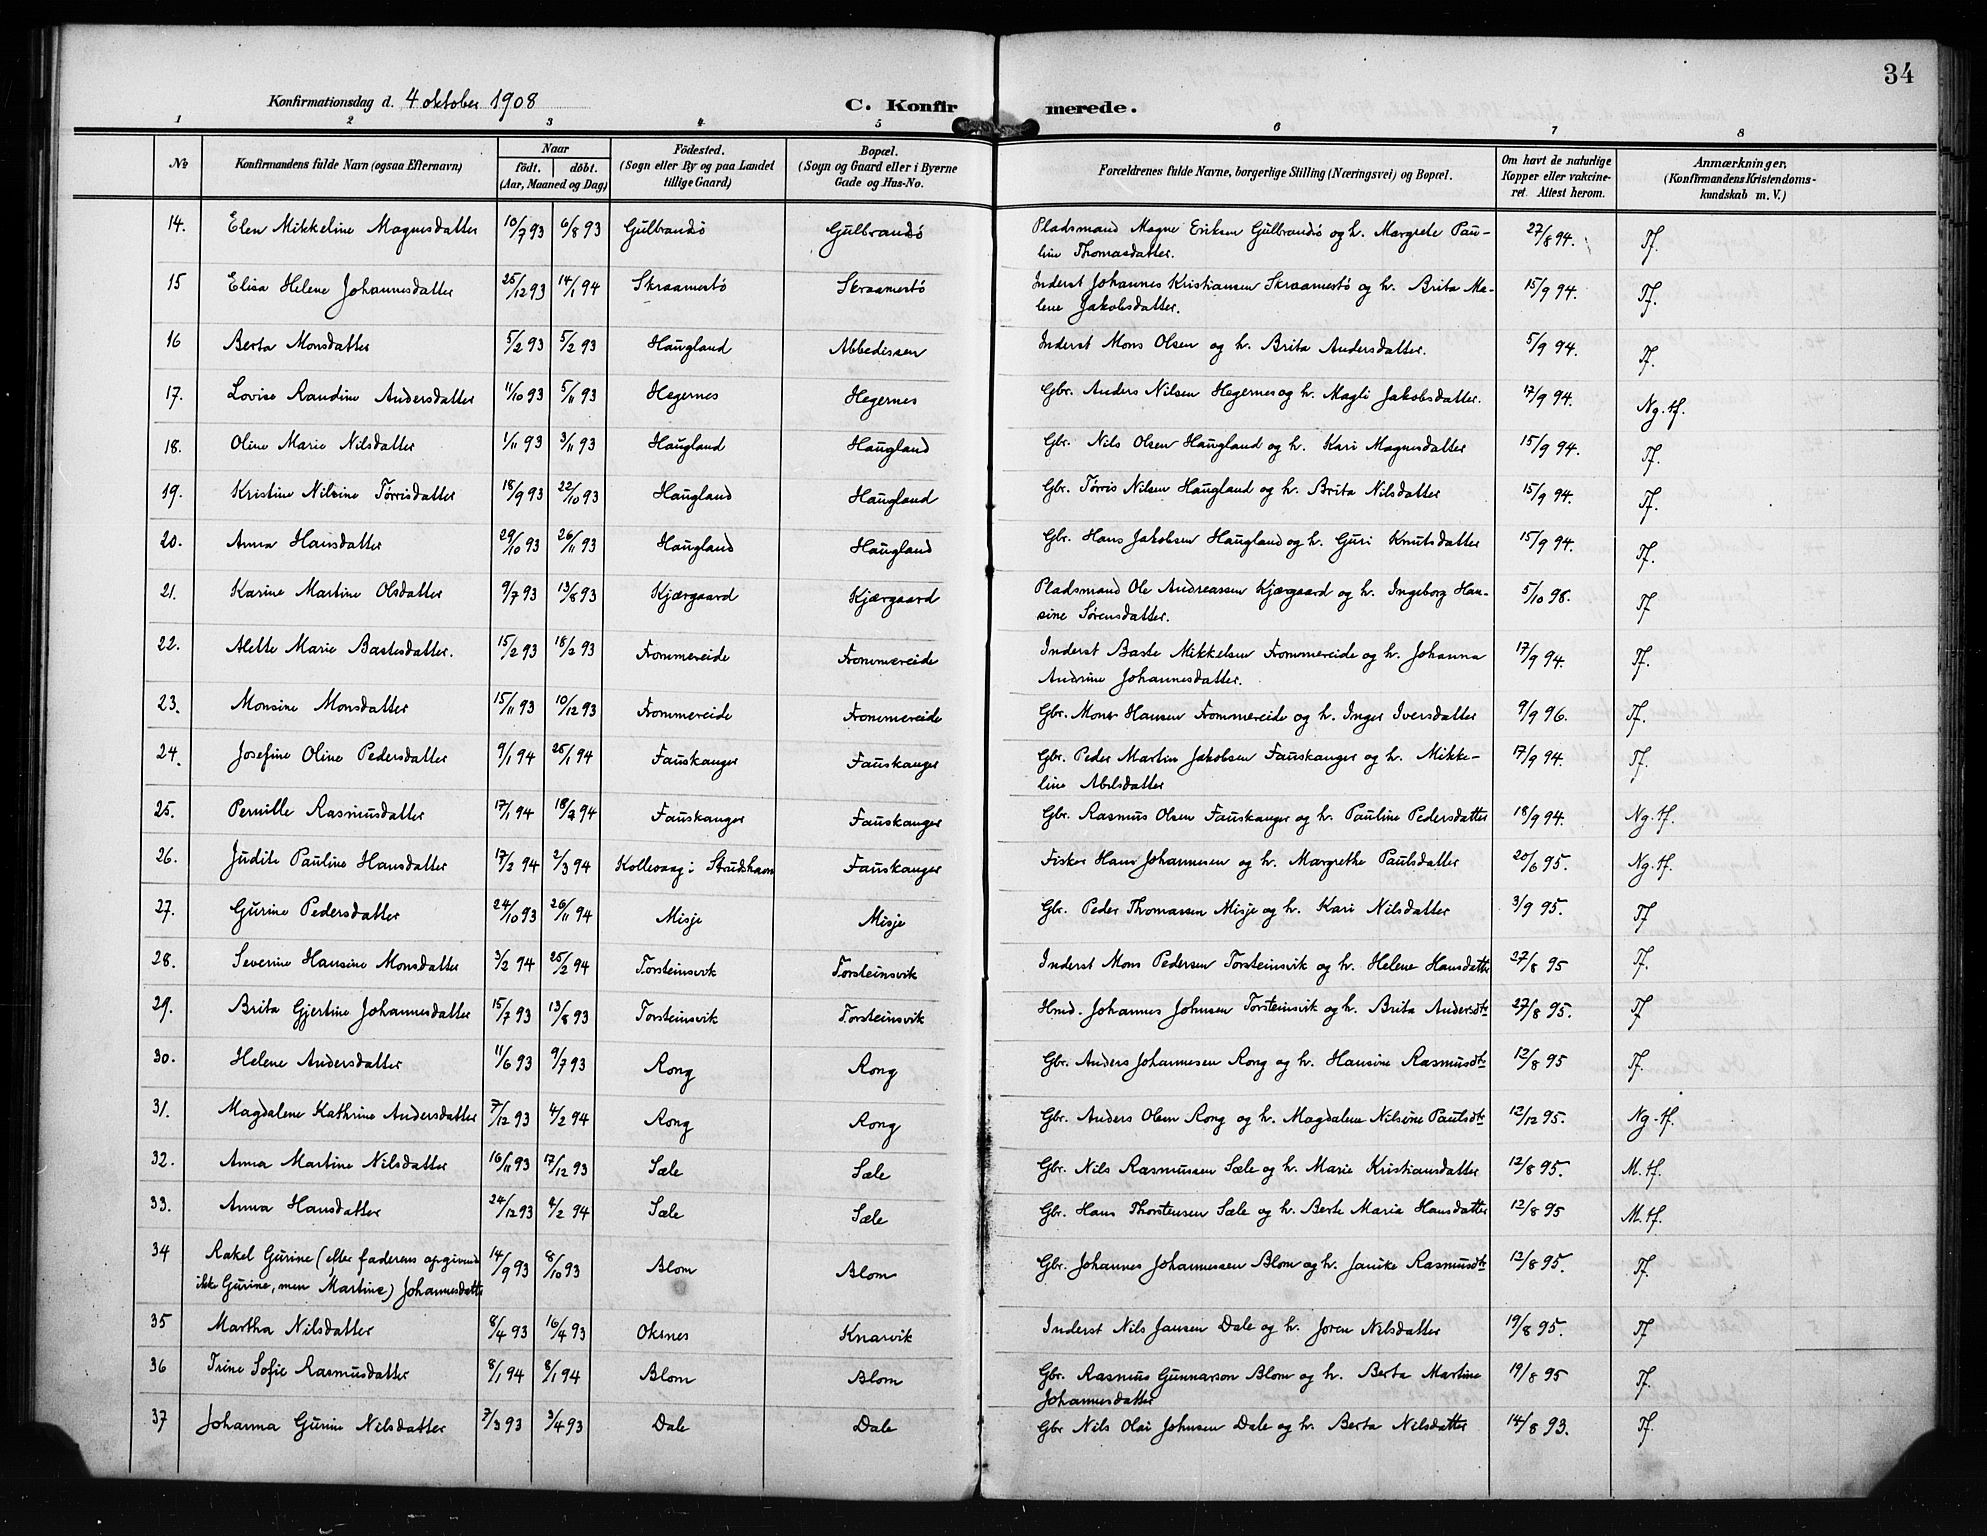 34
Konfirmationsdag d. 4 oktober 1908
C. Konfirmerede.
1 2 3 4 5 6 7 8
No Konfirmandens fulde Navn (ogsaa Efternavn) Naar födt. döbt. (Aar, Maaned og Dag) Födested. (Sogn eller By og paa Landet tillige Gaard) Bopæl. (Sogn og Gaard eller i Byerne Gade og Hus-No. Forældrenes fulde Navne, borgerlige Stilling (Næringsvei) og Bopæl. Om havt de naturlige Kopper eller vakcineret. Attest herom. Anmærkninger. (Konfirmandens Kristendomskundskab m. V.)
14. Elen Mikkeline Magnesdatter 10/7 93 6/8 93 Gulbrandsö Gulbrandsö Pladsmand Magne Eriksen Gulbrandsö og h. Margrete Pau-
line Thomasdatter. 27/8 94. Tf.
15 Elisa Helene Johannesdatter 25/12 93 14/1 94 Skraamestö Skraamestö Inderst Johannes Kristiansen Skraamestö og h. Brita Ma-
lene Jakobsdatter. 15/9 94. Tf.
16 Berta Monsdatter 5/2 93 5/2 93 Haugland Abbedissen Inderst Mons Olsen og h. Brita Andersdatter. 5/9 94. Tf.
17. Lovise Randine Andersdatter 11/10 93 5/11 93 Hegernes Hegernes Gbr. Anders Nilsen Hegernes og h. Magli Jakobsdatter. 17/9 94. Ng. tf.
18. Oline Marie Nilsdatter 1/11 93 3/11 93 Haugland Haugland Gbr. Nils Olsen Haugland og h. Kari Magnesdatter 15/9 94. Tf.
19. Kristine Nilsine Tørrisdatter 18/9 93 22/10 93 Haugland Haugland Gbr. Tørris Nilsen Haugland og h. Brita Nilsdatter 15/9 94. Tf.
20. Anna Hansdatter 29/10 93 26/11 93 Haugland Haugland Gbr. Hans Jakobsen Haugland og h. Guri Knutsdatter 15/9 94. Tf.
21. Karine Martine Olsdatter 9/7 93 13/8 93 Kjærgaard Kjærgaard Pladsmand Ole Andreassen Kjærgaard og h. Ingeborg Han-
sine Sørensdatter. 5/10 98. Tf
22. Alette Marie Bastesdatter. 15/2 93 18/2 93 Frommereide Frommereide Inderst Baste Mikkelsen Frommereide og h. Johanna
Andrine Johannesdatter. 17/9 94. Tf.
23. Monsine Monsdatter 15/11 93 10/12 93 Frommereide Frommereide Gbr. Mons Hansen Frommereide og h. Inger Iversdatter 9/9 96. Tf.
24. Josefine Oline Pedersdatter 9/1 94 25/1 94 Fauskanger Fauskanger Gbr. Peder Martin Jakobsen Fauskanger og h. Mikke-
line Abelsdatter 17/9 94. Tf.
25. Pernille Rasmusdatter 17/1 94 18/2 94 Fauskanger Fauskanger Gbr. Rasmus Olsen Fauskanger og h. Pauline Pedersdatter 18/9 94. Ng. tf.
26. Judite Pauline Hansdatter 17/2 94 2/3 94 Kollevaag i Strudshavn Fauskanger Fisker Hans Johannesen og h. Margrethe Paulsdatter 20/6 95. Ng. tf.
27. Gurine Pedersdatter 24/10 93 26/11 94 Misje Misje Gbr. Peder Thomassen Misje og h. Kari Nilsdatter 3/9 95. Tf
28. Severine Hansine Monsdatter 3/2 94 25/2 94 Torsteinsvik Torsteinsvik Inderst Mons Pedersen Torsteinsvik og h. Helene Hansdatter 27/8 95 Tf.
29. Brita Gjertine Johannesdatter 15/7 93 13/8 93 Torsteinsvik Torsteinsvik Hmd. Johannes Johnsen Torsteinsvik og h. Brita Andersdtr 27/8 95. Tf
30. Helene Andersdatter 11/6 93 9/7 93 Rong Rong Gbr. Anders Johannesen Rong og h. Hansine Rasmusdtr 12/8 95 Tf.
31. Magdalene Kathrine Andersdatter 7/12 93 4/2 94 Rong Rong Gbr. Anders Olsen Rong og h. Magdalene Nilsine Paulsdtr 12/12 95. Ng-tf.
32. Anna Martine Nilsdatter 16/11 93 17/12 93 Sæle Sæle Gbr. Nils Rasmussen Sæle og h. Marie Kristiansdatter 12/8 95. M. tf.
33. Anna Hansdatter 24/12 93 4/2 94 Sæle Sæle Gbr. Hans Thorstensen Sæle og h. Berte Maria Hansdatter 12/8 95 M. tf.
34 Rakel Gurine (efter faderens opgivende
ikke Gurine, men Martine) Johannesdatter 14/9 93 8/10 93 Blom Blom Gbr. Johannes Johannessen Blom og h. Janike Rasmusdtr 12/8 95. Tf.
35 Martha Nilsdatter 8/4 93 16/4 93 Oksnes Knarvik Inderst Nils Jansen Dale og h. Joren Nilsdatter 19/8 95. Tf
36 Trine Sofie Rasmusdatter 8/1 94 8/1 94 Blom Blom Gbr. Rasmus Gunnarson Blom og h. Berta Martine
Johannesdatter 19/8 95 Tf.
37 Johanna Gurine Nilsdatter 7/3 93 3/4 93 Dale Dale Gbr Nils Olai Johnsen Dale og h. Berta Nilsdatter 14/8 93. Tf.